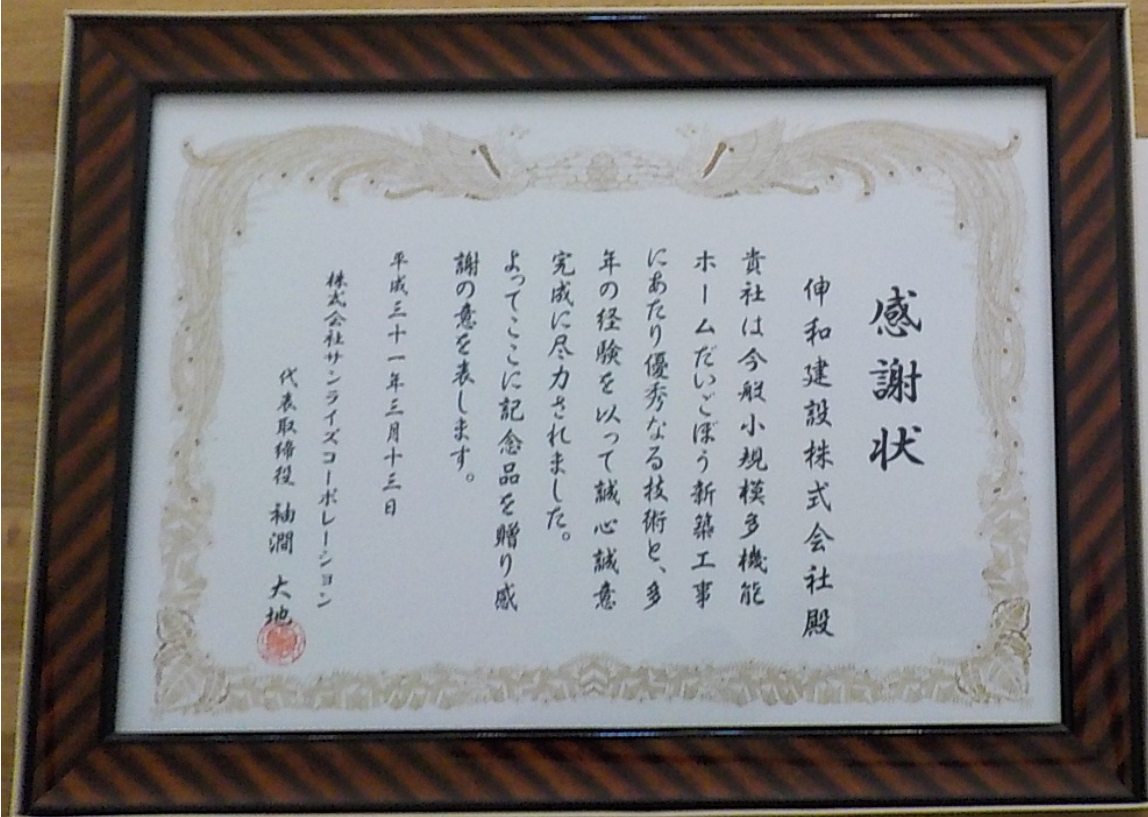 感謝状
伸和建設株式会社殿
貴社は今般小規模多機能
ホームだいごぼう新築工事
にあたり優秀なる技術と、多
年の経験を以って誠心誠意
完成に尽力されました。
よってここに記念品を贈り感
謝の意を表します。
平成三十一年三月十三日
株式会社サンライズコーポレーション
代表取締役 袖澗 大地